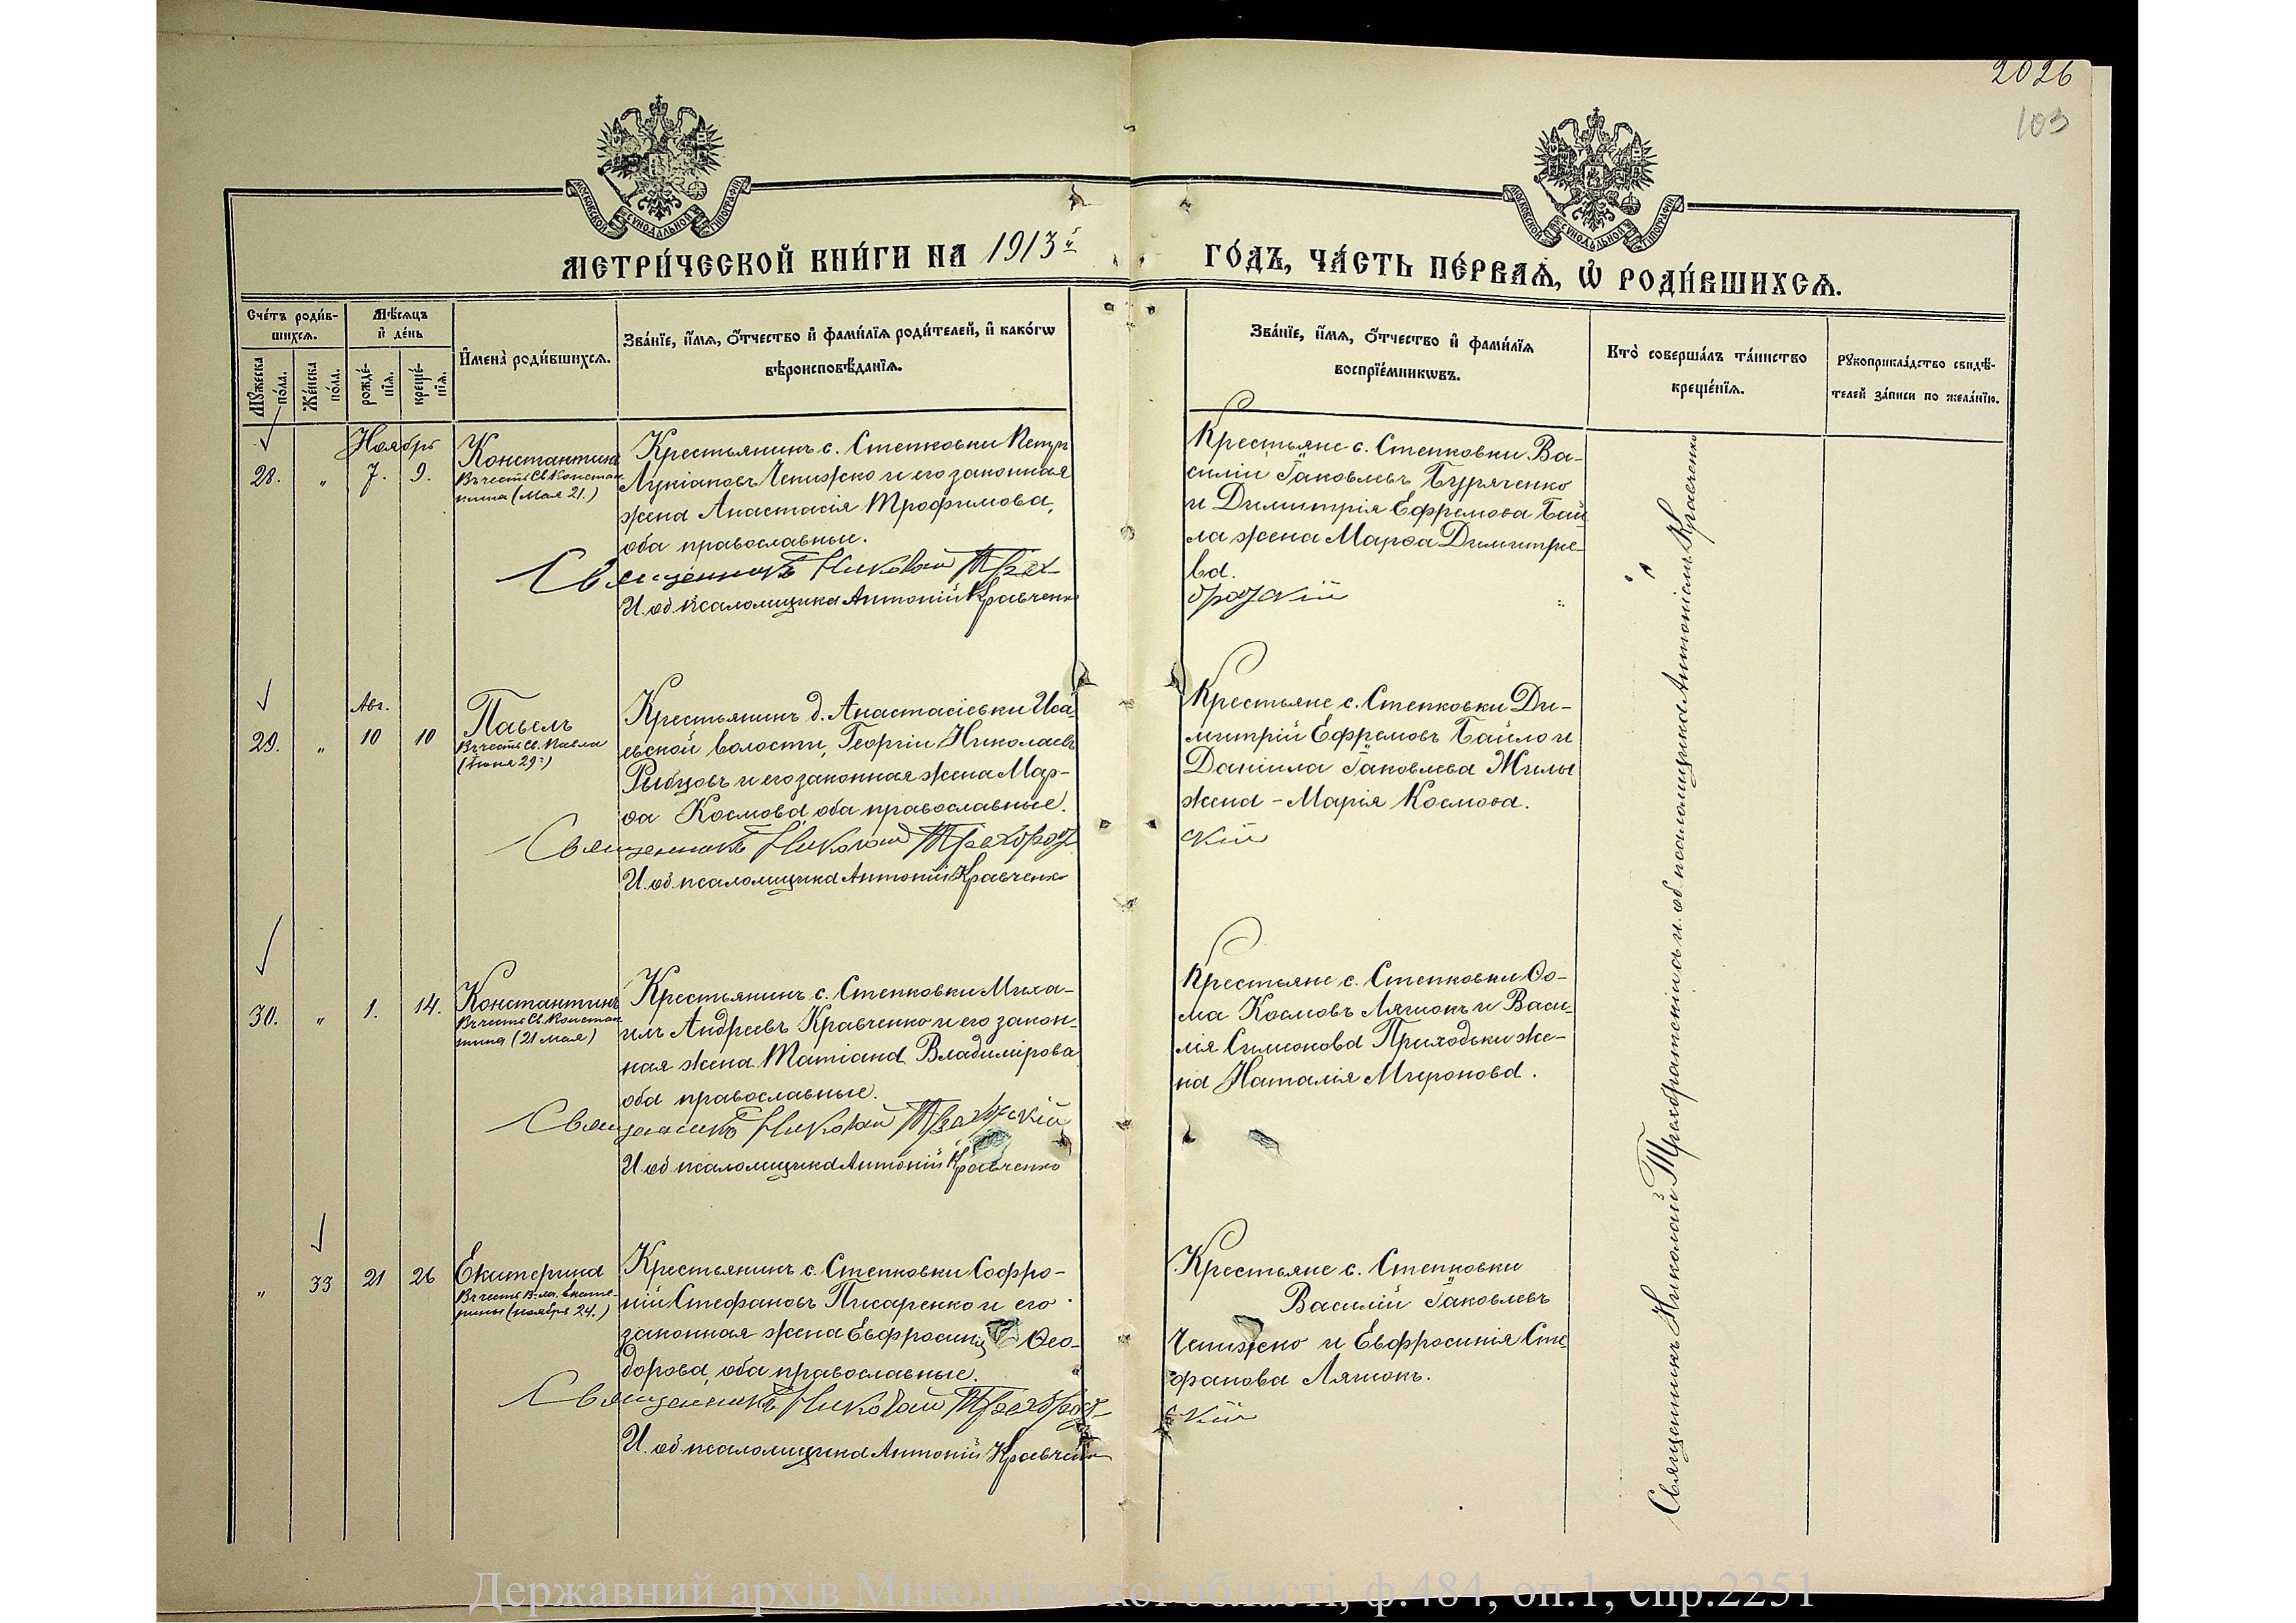 2026
103
МОСКОВСКОЙ СѴНОДАЛЬНОЙ ТИПОГРАФІИ
МОСКОВСКОЙ СѴНОДАЛЬНОЙ ТИПОГРАФІИ
МЕТРИ́ЧЕСКОЙ КНИ́ГИ НА 1913й
ГО́ДЪ, ЧА́СТЬ ПЕ́РВАѦ, Ѡ҆ РОДИ́ВШИХСѦ.
Сче́тъ роди́в-
шихсѧ.
Мѣ́сѧцъ
и҆ де́нь
Мꙋ́жеска
по́ла.
Же́нска
по́ла.
рожде́-
нїѧ.
креще́-
нїѧ.
И҆мена̀ роди́вшихсѧ.
Зва́нїе, и҆́мѧ, ѻ҆́тчество и҆ фами́лїѧ роди́телей, и҆ како́гѡ
вѣроисповѣ́данїѧ.
Зва́нїе, и҆́мѧ, ѻ҆́тчество и҆ фами́лїѧ
воспрїе́мникѡвъ.
Кто̀ соверша́лъ та́инство
креще́нїѧ.
Рꙋкоприкла́дство свидѣ́-
телей за́писи по жела́нїю.
Ноябрь
28. „ 7. 9.
Константинъ
Въ честь Св. Констан-
тина (Мая 21.)
Крестьянинъ с. Степковки Петръ
Лукіановъ Чепижко и его законная
жена Анастасія Трофимова,
оба православные.
Священникъ Николай Трех-
И. об. псаломщика Антоній Кравченко
Крестьяне с. Степковки Ва-
силій Іаковлевъ Буряченко
и Димитрія Ефремова Бай-
ла жена Марѳа Димитрие-
ва.
братскій
Авг.
29. „ 10 10
Павелъ
Въ честь Св. Павла
(Іюня 29:)
Крестьянинъ д. Анастасіевки Иса-
евской волости, Георгій Николаевъ
Рыбцовъ и его законная жена Мар-
ѳа Космова, оба православные.
Священникъ Николай Трехбрат-
И. об. псаломщика Антоній Кравченко
Крестьяне с. Степковки Ди-
митрій Ефремовъ Байло и
Даніила Іаковлева Жилы
жена - Марія Космова.
скій
30. „ 1. 14.
Константинъ
Въ честь Св. Констан-
тина (21 Мая)
Крестьянинъ с. Степковки Миха-
илъ Андреевъ Кравченко и его закон-
ная жена Татіана Владимірова
оба православные.
Священникъ Николай Трехбратскій
И. об. псаломщика Антоній Кравченко
Крестьяне с. Степковки Ѳо-
ма Космовъ Ляшокъ и Васи-
лія Симеонова Приходьки же-
на Наталія Миронова.
„ 33 21 26
Екатерина
Въ честь В.-м. Екате-
рины (ноября 24.)
Крестьянинъ с. Степковки Софро-
ній Стефановъ Писаренко и его
законная жена Евфросинія Ѳео-
дорова, оба православные.
Священникъ Николай Трехбрат-
И. об. псаломщика Антоній Кравченко
Крестьяне с. Степковки
Василій Іаковлевъ
Чепижко и Евфросинія Сте-
фанова Ляшокъ.
скій
Священникъ Николай Трехбратскій и и. об. псаломщика Антоній Кравченко
Державний архів Миколаївської області, ф.484, оп.1, спр.2251